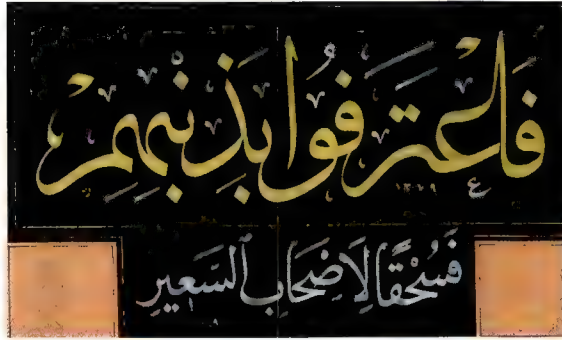 فَاعْتَرَفُوا بِذَنْبِهِمْ
فَسُحْقًا لِأَصْحَابِ السَّعِيرِ